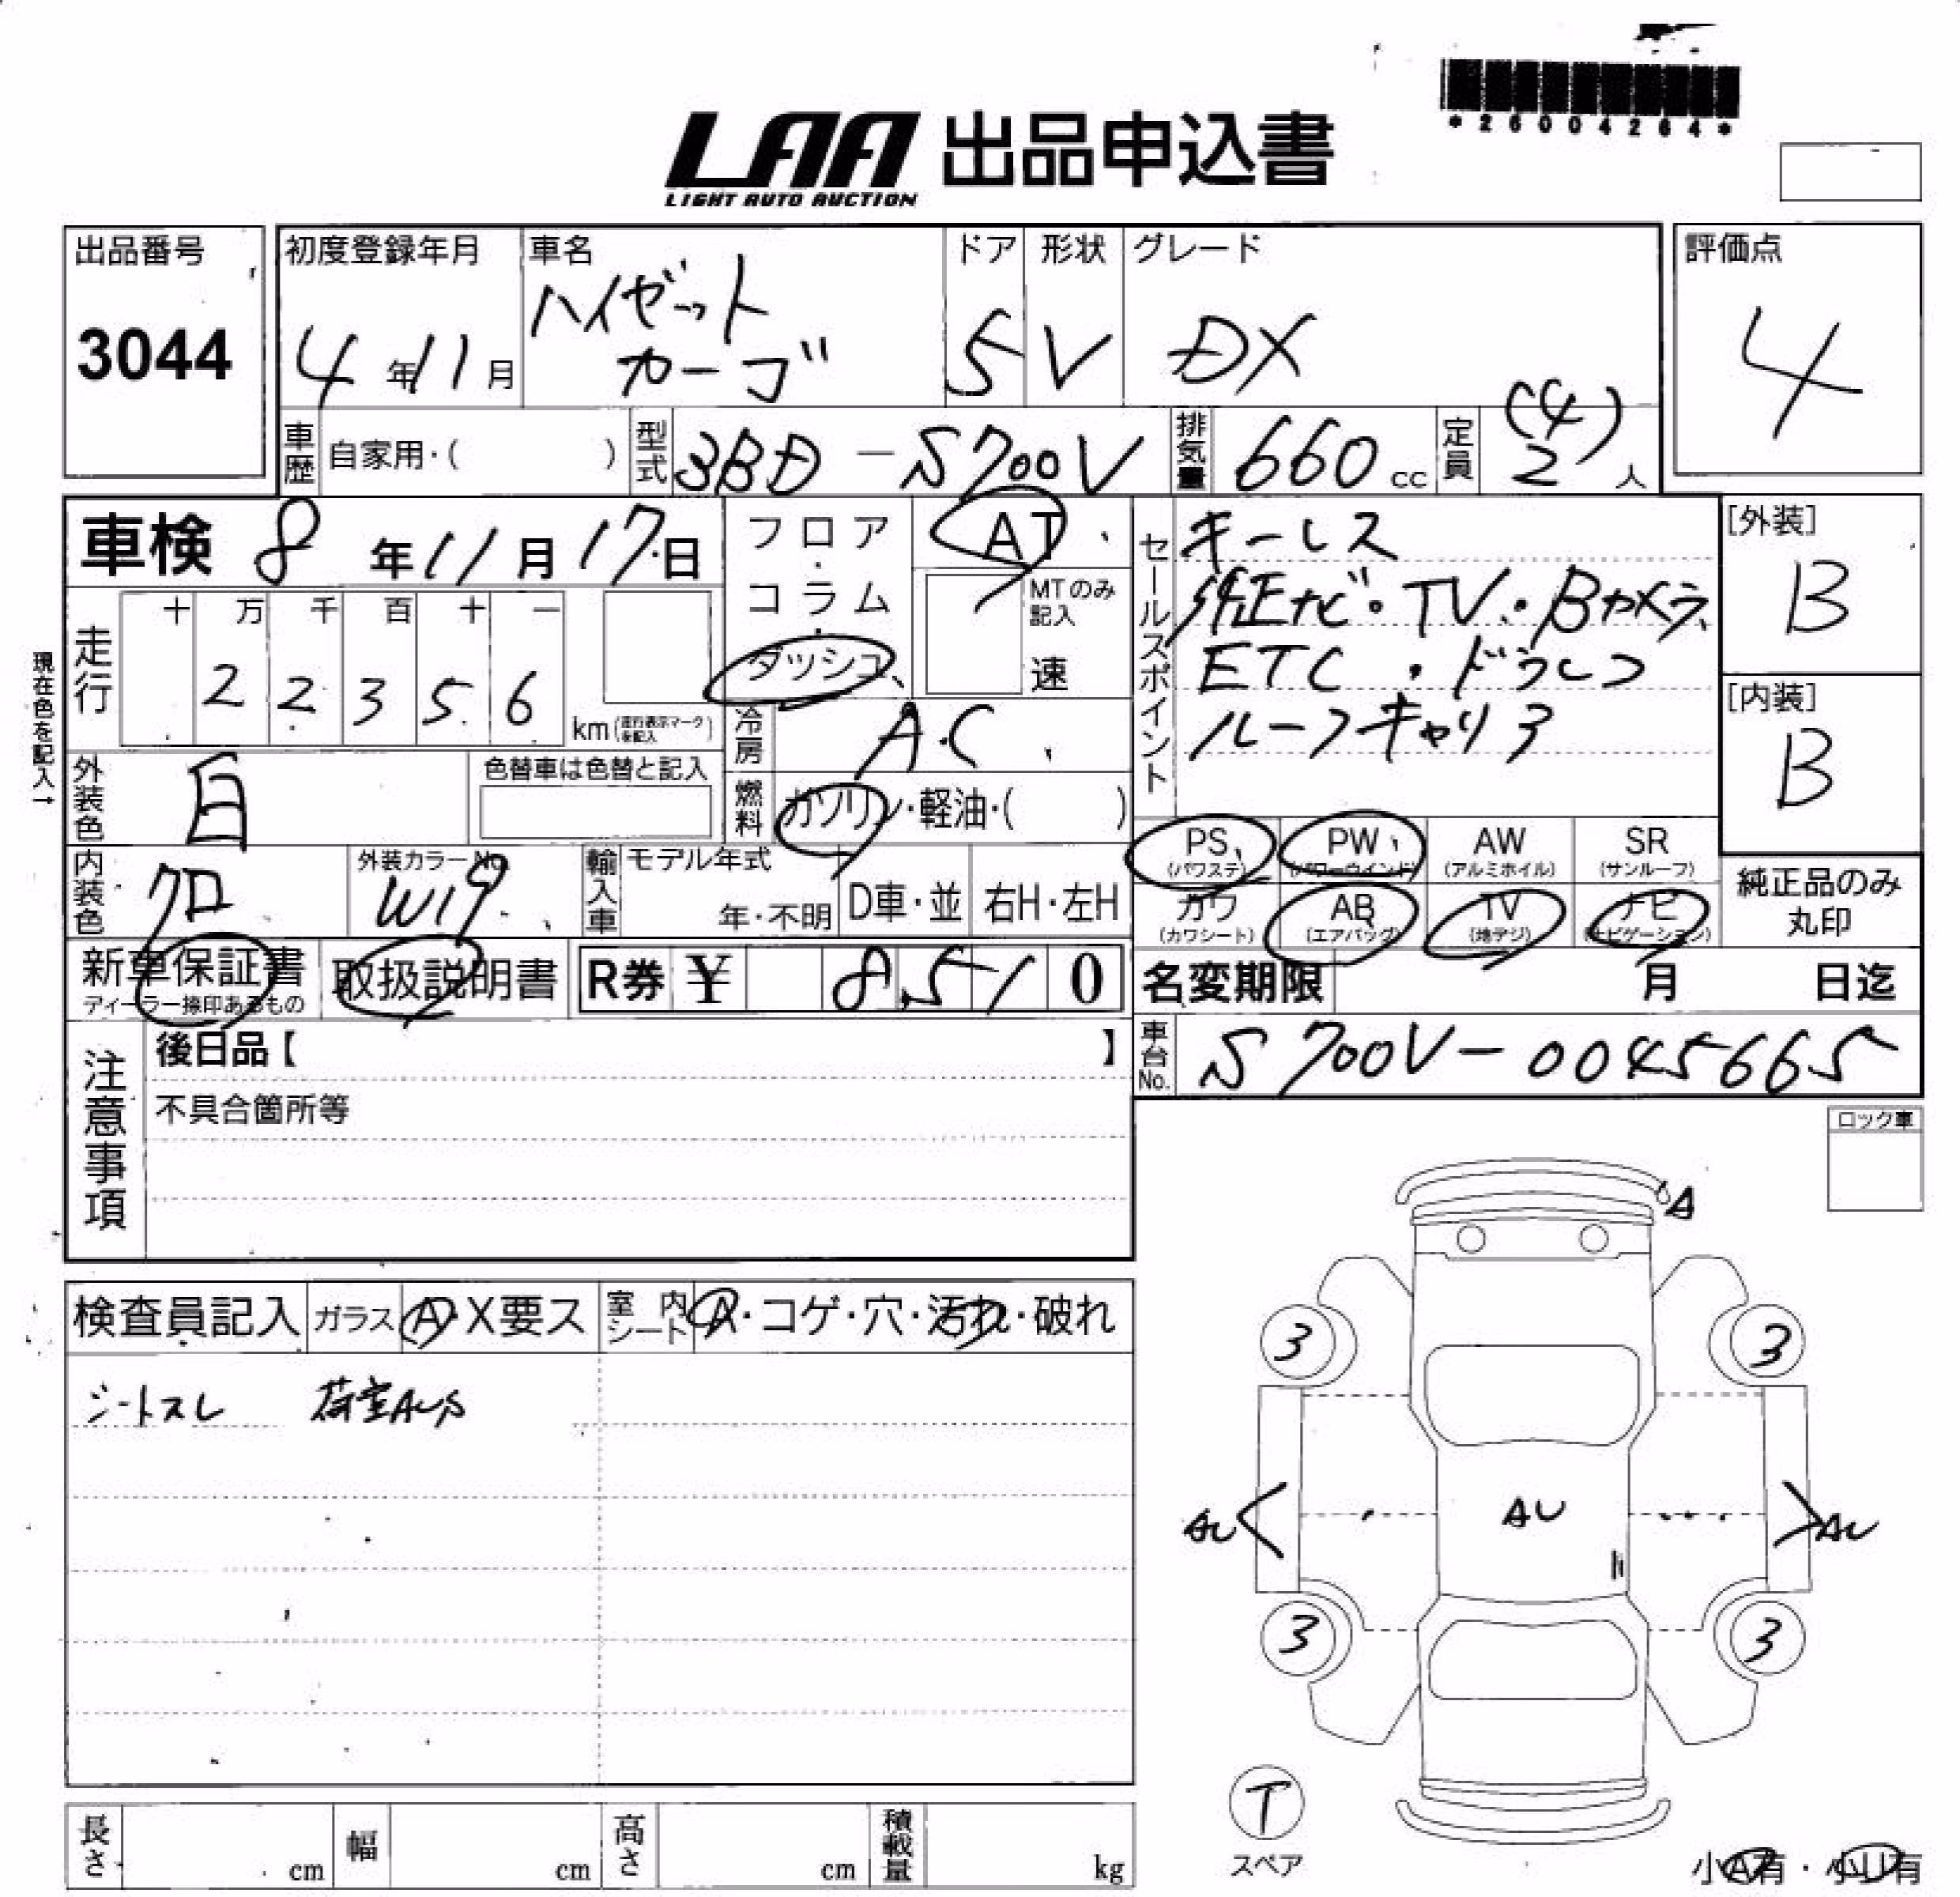 *26004264*
LAA 出品申込書
LIGHT AUTO AUCTION
出品番号
3044
初度登録年月
4年11月
車名
ハイゼット
カーゴ
ドア
5
形状
V
グレード
DX
評価点
4
車歴
自家用・( )
型式
3BD-S700V
排気量
660cc
定員
(4)
2人
車検 8年11月17日
フロア
・
コラム
・
ダッシュ
AT
MTのみ
記入
速
セールスポイント
キーレス
純正ナビ・TV・Bカメラ
ETC・ドラレコ
ルーフキャリア
[外装]
B
[内装]
B
現在色を記入→
走行
十 万 千 百 十 一
2 2 3 5 6
km(走行表示マークを記入)
冷房
AC
外装色
白
色替車は色替と記入
燃料
ガソリン・軽油・( )
PS
(パワステ)
PW
(パワーウインド)
AW
(アルミホイル)
SR
(サンルーフ)
カワ
(カワシート)
AB
(エアバッグ)
TV
(地デジ)
ナビ
(ナビゲーション)
純正品のみ
丸印
内装色
クロ
外装カラーNo.
W19
輸入車
モデル年式
年・不明
D車・並
右H・左H
新車保証書
ディーラー捺印あるもの
取扱説明書
R券 ¥ 8,510
名変期限 月 日迄
車台No.
S700V-0045665
注意事項
後日品【 】
不具合箇所等
ロック車
検査員記入
ガラス
A・X要ス
室内シート
A・コゲ・穴・汚れ・破れ
シートスレ 荷室AUS
A
3
3
AU
AU
AU
3
3
T
スペア
長さ cm
幅 cm
高さ cm
積載量 kg
小A有・小U有